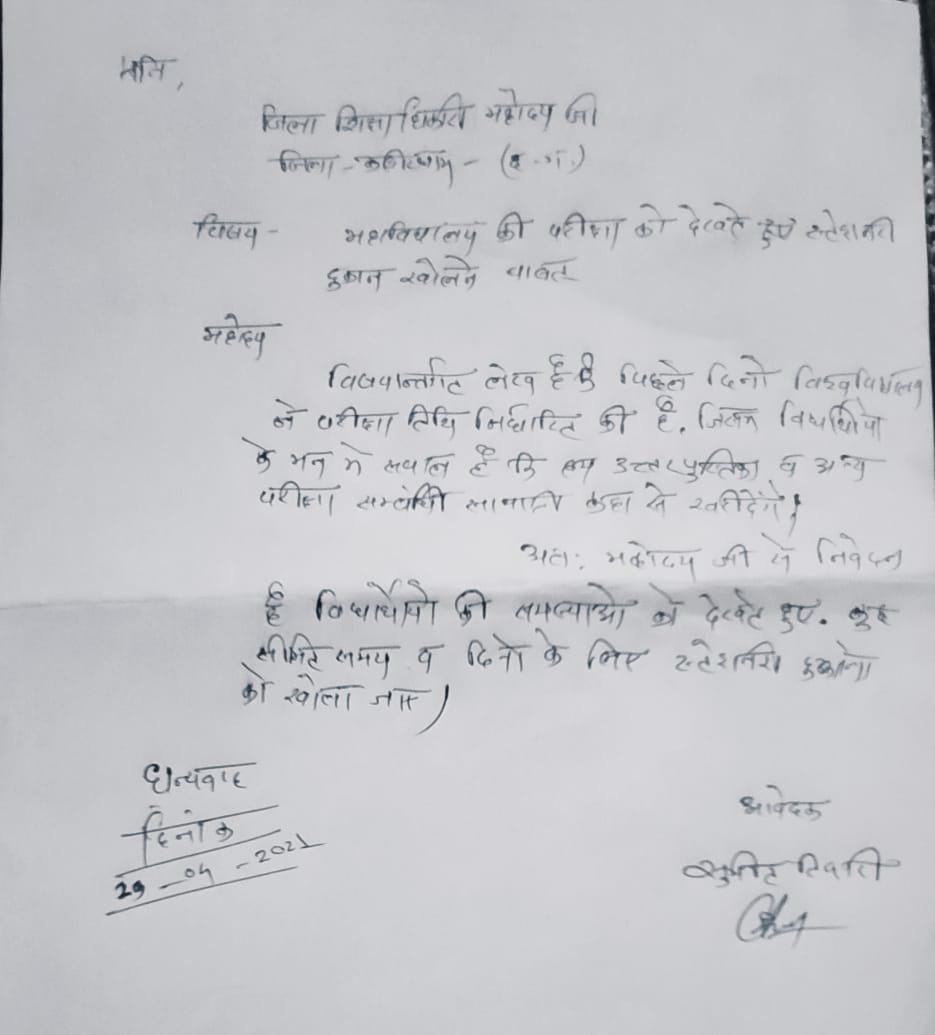 प्रति,
जिला शिक्षा धिकारी महोदय जी
जिला - कबीरधाम - (छ.ग.)
विषय - महाविद्यालय की परीक्षा को देखते हुए स्टेशनरी
दुकान खोलने बाबत
महोदय
विषयान्तर्गत लेख है कि पिछले दिनो विश्वविद्यालय
ने परीक्षा तिथि निर्धारित की है, जिससे विद्यार्थियो
के मन मे सवाल है कि हम उत्तरपुस्तिका व अन्य
परीक्षा सम्बंधी सामाग्री कहा से खरीदेंगे।
अतः महोदय जी से निवेदन
है विद्यार्थियो की समस्याओ को देखते हुए. कुछ
सीमित समय व दिनो के लिए स्टेशनरी दुकानो
को खोला जाए।
धन्यवाद
दिनांक
29-04-2021
आवेदक
तिवारी